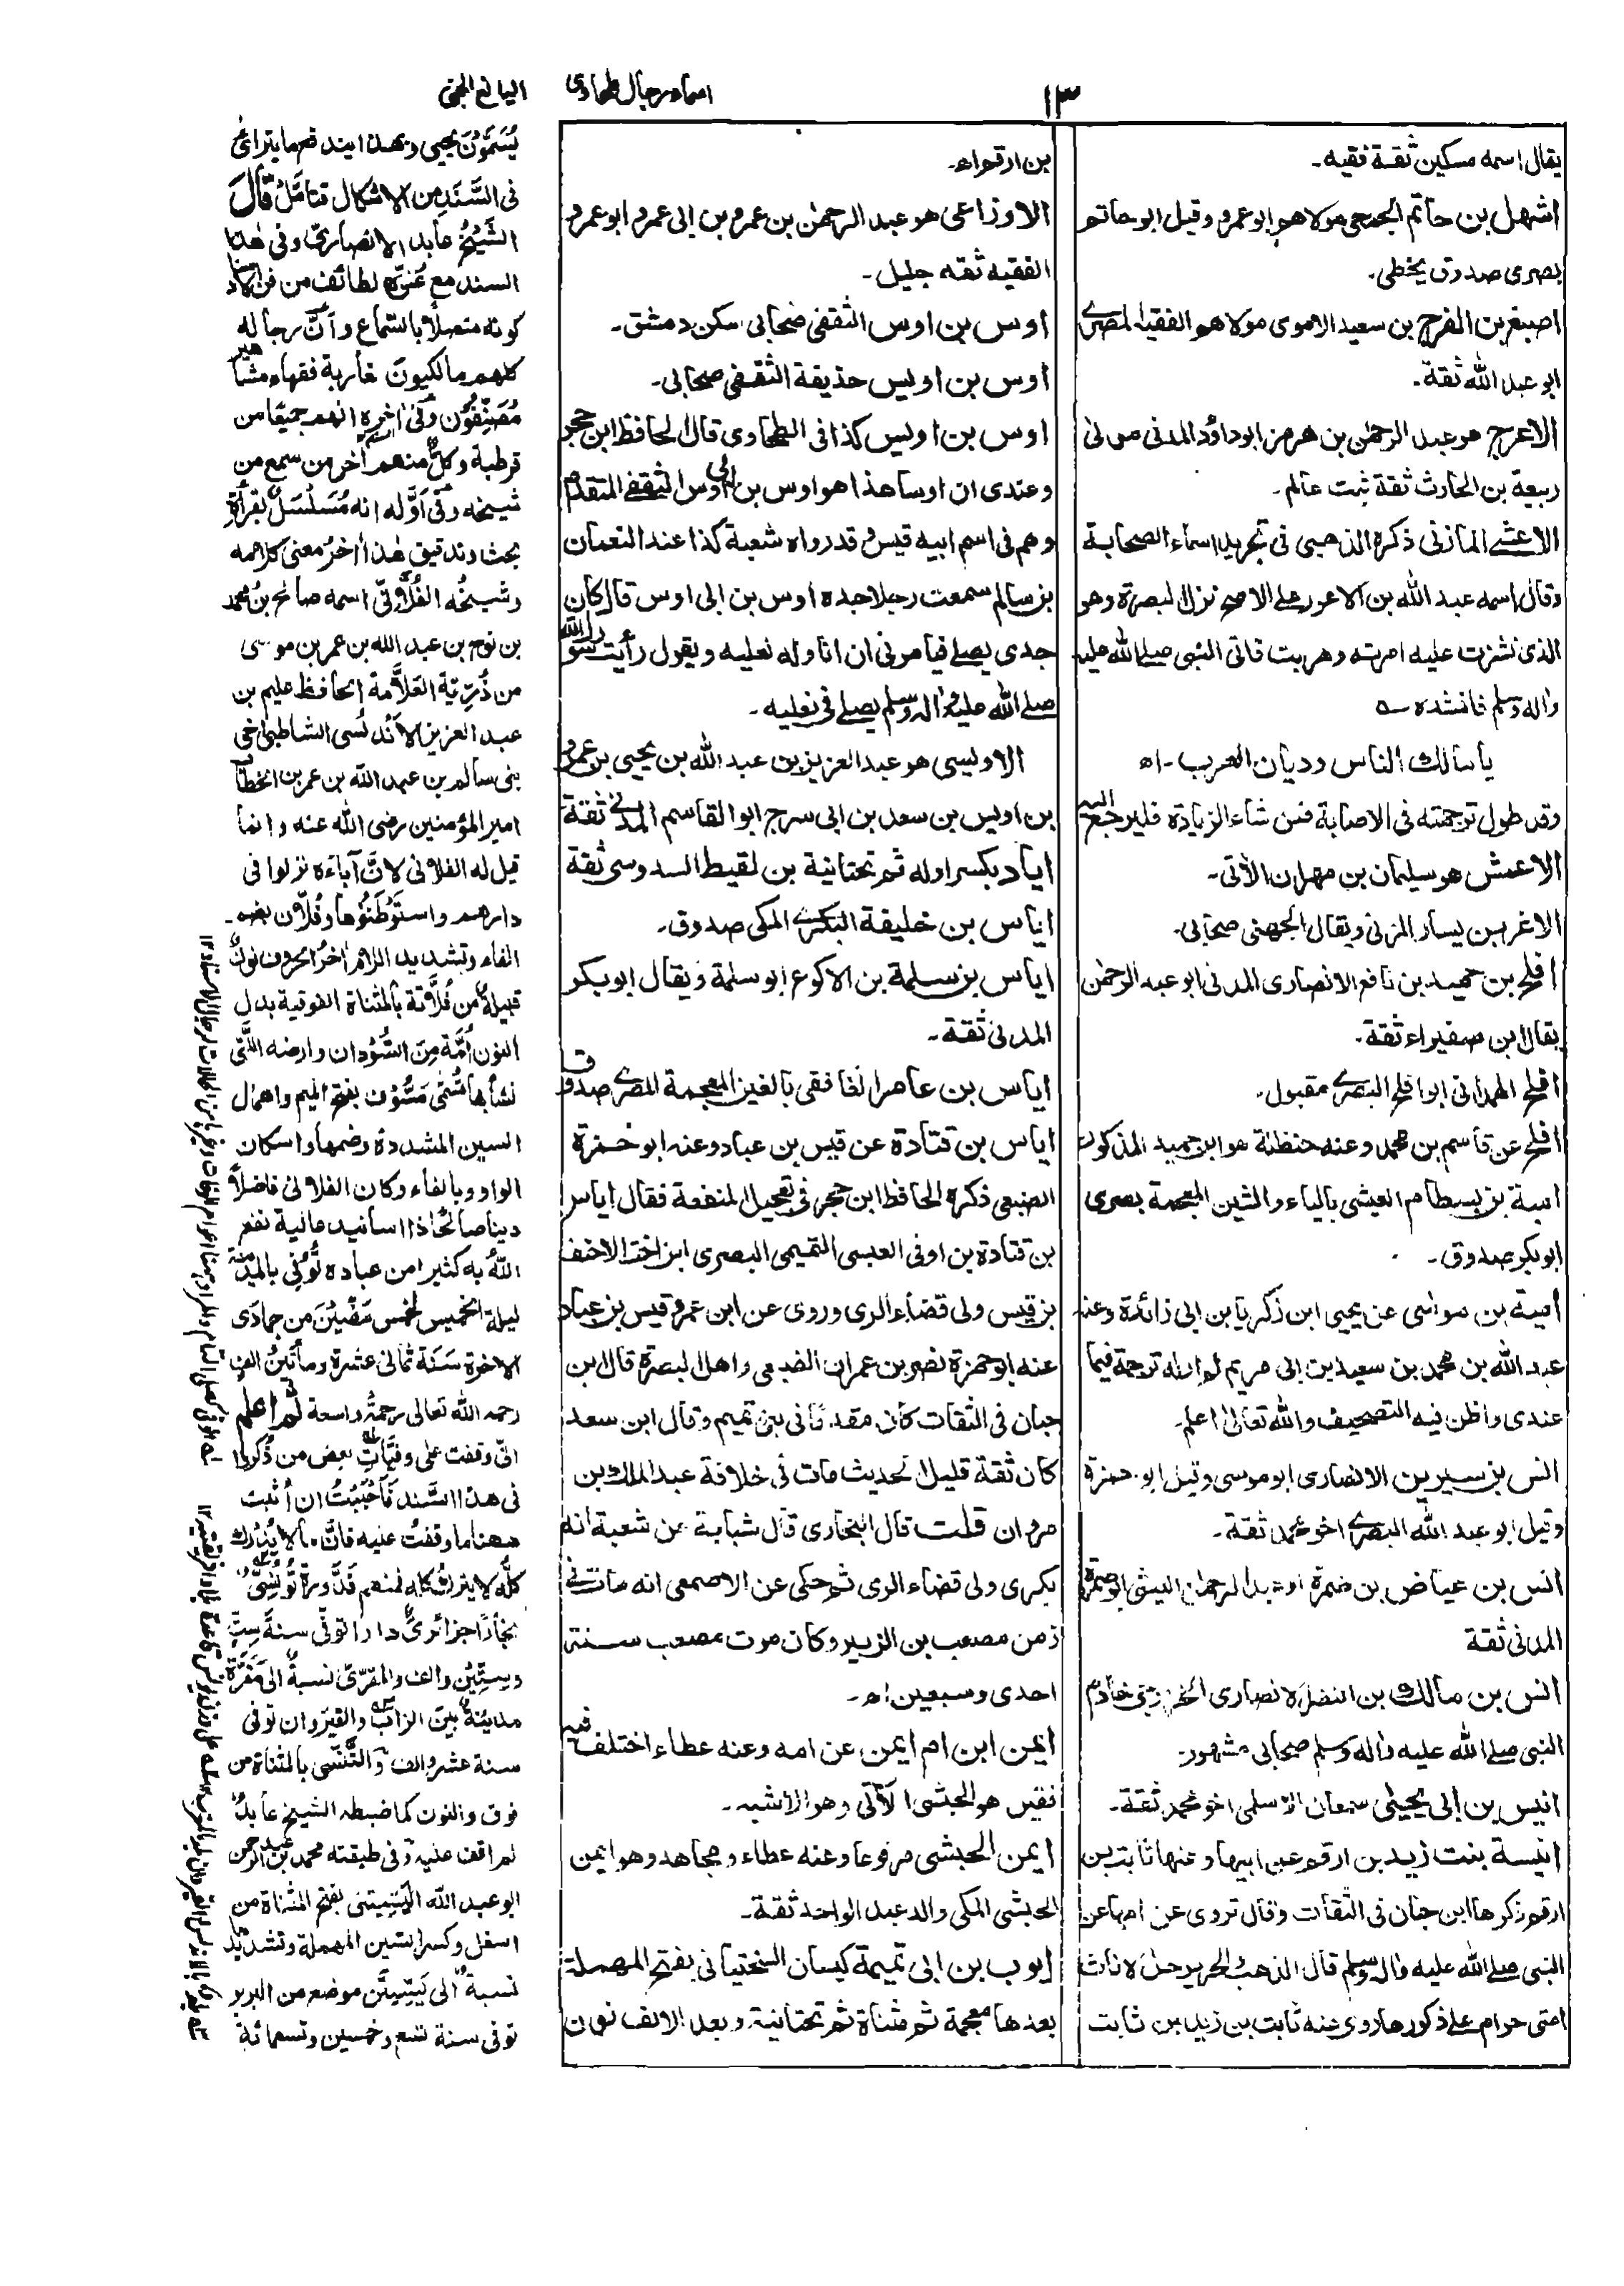 ١٣
اسماء رجال طحاوى
اليانع الجنى
يقال اسمه مسكين ثقة فقيه۔
اشهل بن حاتم الجمحى مولاهم ابو عمرو وقيل ابو حاتم
بصرى صدوق يخطى۔
اصبغ بن الفرج بن سعيد الاموى مولاهم الفقيه المصرے
ابو عبد الله ثقة۔
الاعرج هو عبد الرحمٰن بن هرمز ابو داؤد المدنى مولى
ربيعة بن الحارث ثقة ثبت عالم۔
الاعشے المازنى ذكره الذهبى فى تجريد اسماء الصحابة
وقال اسمه عبد الله بن الاعور على الاصح نزل البصرة وهو
الذى نشزت عليه امرته وهربت فاتى النبى صلے الله عليه
واله وسلم فانشده ے
يا مالك الناس وديان العرب ۔اه
وقد طول ترجمته فى الاصابة فمن شاء الزيادة فليرجع اليه
الاعمش هو سليمان بن مهران الأتى۔
الاغر بن يسار المزنى ويقال الجهنى صحابى۔
افلح بن حميد بن نافع الانصارى المدنى ابو عبد الرحمٰن
يقال ابن صفيراء ثقة۔
افلح الهمدانى ابو افلح البصرے مقبول۔
افلح عن قاسم بن محمد وعنه حنظلة هو ابن حميد المذكور
امية بن بسطام العيشى بالياء والشين المعجمة بصرى
ابو بكر صدوق۔
امية بن مواسى عن يحيى ابن زكريا بن ابى زائدة وعنه
عبد الله بن محمد بن سعيد بن ابى مريم لم ار له ترجمة فيما
عندى واظن فيه التصحيف والله تعالىٰ اعلم۔
انس بن سيرين الانصارى ابو موسى وقيل ابو حمزة
وقيل ابو عبد الله البصرے اخو محمد ثقة۔
انس بن عياض بن ضمرة او عبد الرحمان الليثى ابو ضمرة
المدنى ثقة
انس بن مالك بن النضر الانصارى الخزرجى خادم
النبى صلے الله عليه واله وسلم صحابى مشهور۔
انيس بن ابى يحيىٰ سمعان الاسلمى اخو محمد ثقة۔
انيسة بنت زيد بن ارقم عن ابيها وعنها ثابت بن
ارقم ذكرها ابن حبان فى الثقات وقال تروى عن امها عن
النبى صلے الله عليه واله وسلم قال الذهب الحرير حل لاناث
امتى حرام علے ذكورها روى عنه ثابت بن زيد بن ثابت
بن ارقم اه۔
الاوزاعى هو عبد الرحمٰن بن عمرو بن ابى عمرو ابو عمرو
الفقيه ثقه جليل۔
اوس بن اوس الثقفى صحابى سكن دمشق۔
اوس بن اويس حذيفة الثقفى صحابى۔
اوس بن اويس كذا فى الطحاوى قال الحافظ ابن حجر
وعندى ان اوسا هذا هو اوس بن ابى اوس الثقفے المتقدم
وهم فى اسم ابيه قيس وقد رواه شعبة كذا عند النعمان
بن سالم سمعت رجلا جده اوس بن ابى اوس قال كان
جدى يصلے فيامرنى ان اناوله نعليه ويقول رأيت رسول الله
صلے الله عليه واله وسلم يصلے فى نعليه۔
الاويسى هو عبد العزيز بن عبد الله بن يحيى بن عمرو
بن اويس بن سعد بن ابى سرح ابو القاسم المدنى ثقة
اياد بكسر اوله ثم تحتانية بن لقيط السدوسى ثقة
اياس بن خليفة البكرے المكى صدوق۔
اياس بن سلمة بن الاكوع ابو سلمة ويقال ابو بكر
المدنى ثقة۔
اياس بن عامر الغافقى بالغين المعجمة المصرے صدوق
اياس بن قتادة عن قيس بن عباد وعنه ابو حمزة
الضبعى ذكره الحافظ ابن حجر فى تعجيل المنفعة فقال اياس
بن قتادة بن اوفى العبسى التميمى البصرى ابن اخت الاحنف
بن قيس ولى قضاء الرى وروى عن ابن عمر وقيس بن عباد
عنه ابو حمزة نصر بن عمران الضبعى واهل البصرة قال ابن
حبان فى الثقات كان مقدما فى بنى تميم وقال ابن سعد
كان ثقة قليل الحديث مات فى خلافة عبد الملك بن
مروان قلت قال البخارى قال شبابة عن شعبة انه
بكرى ولى قضاء الرى ثم حكى عن الاصمعى انه مات فى
زمن مصعب بن الزبير وكان موت مصعب سنة
احدى وسبعين اه۔
ايمن ابن ام ايمن عن امه وعنه عطاء اختلف فيه
فقيل هو الحبشى الأتى وهو الاشبه۔
ايمن الحبشى مرفوعا وعنه عطاء ومجاهد وهو ايمن
الحبشى المكى والد عبد الواحد ثقة۔
ايوب بن ابى تميمة كيسان السختيانى بفتح المهملة
بعدها معجمة ثم مثناة ثم تحتانية وبعد الالف نون
يُسَمَّوْنَ يحيى وبهذا يندفع ما يترائى
فى السَّنَدِ من الاشكال فتأمل قال
الشَّيْخُ عابد الانصارىّ وفى هذا
السند مع لطائف من فن الاسناد
كونه متصلا بالسَّماع وأنّ رجاله
كلهم مالكيون مغاربة فقهاء مشاهير
مُصَنِّفُون وفى اخره انهم جميعا من
قرطبة وكلٌّ منهم آخر من سمع من
شيخه وفى اَوّله انه مُسَلْسَلٌ بقرأة
بحث وتدقيق هذا اٰخرُ معنى كلامه
وشيخُه الفُلّانىّ اسمه صالح بن محمد
بن نوح بن عبد الله بن عمر بن موسى
من ذُرّيّة العَلَّامة الحافظ عليم بن
عبد العزيز الاندلسى الشاطبى اخى
بنى سالم بن عبد الله بن عمر بن الخطاب
امير المؤمنين رضى الله عنه وانما
قيل له الفلانى لانَّ آباءه نزلوا فى
دارهم واستَوْطَنُوها وفُلّان بضم
الفاء وتشديد اللام اٰخرُ الحروف نون
قبيلةٌ من فُلاتة بالمثناة الفوقية بدل
النون اُمّة مِنَ السُّوْدان وارضه الّتى
نشأ بها تُسمّى مَسُّوْف بفتح الميم واهمال
السين المشددة وضمها واسكان
الواو وبالفاء وكان الفلانى فاضلاً
دينا صالحًا ذا اسانيد عالية نفع
اللهُ به كثيرا من عباده تُوُفّى بالمدينة
ليلة الخميس لخمس مَضَيْنَ من جمادَى
الاٰخرة سَنَة ثمانى عشرة ومأتين الف
رحمه الله تعالى رحمةً واسعة ثم اعلم
انّى وقفت على وفيّات بعض من ذُكروا
فى هذا السَّند فَأَحْبَبْتُ ان أُثبت
ههنا ما وقفتُ عليه فانَّ ما لا يُدْرك
كلُّه لا يترك كله فمنهم قَدُّورة تُونُسىٌّ
نجاراً جزائرىٌّ داراً توفّى سنة سِتٍّ
وسِتّيْن والف والمقرّىّ نسبةٌ الى مَقَّرَة
مدينةٌ بين الزاب والقيروان توفى
سنة عشر والف والتَّنَسى بالمثناة من
فوق والنون كما ضبطه الشيخ عابد
لم اقف عليه وفى طبقته محمد بن عبد الرحمن
ابو عبد الله اليَسِّيتنى بفتح المثناة من
اسفل وكسر السين المهملة وتشديد
نسبةٌ الى يَسِّيتَن موضع من البربر
توفى سنة تسع وخمسين وتسعمائة